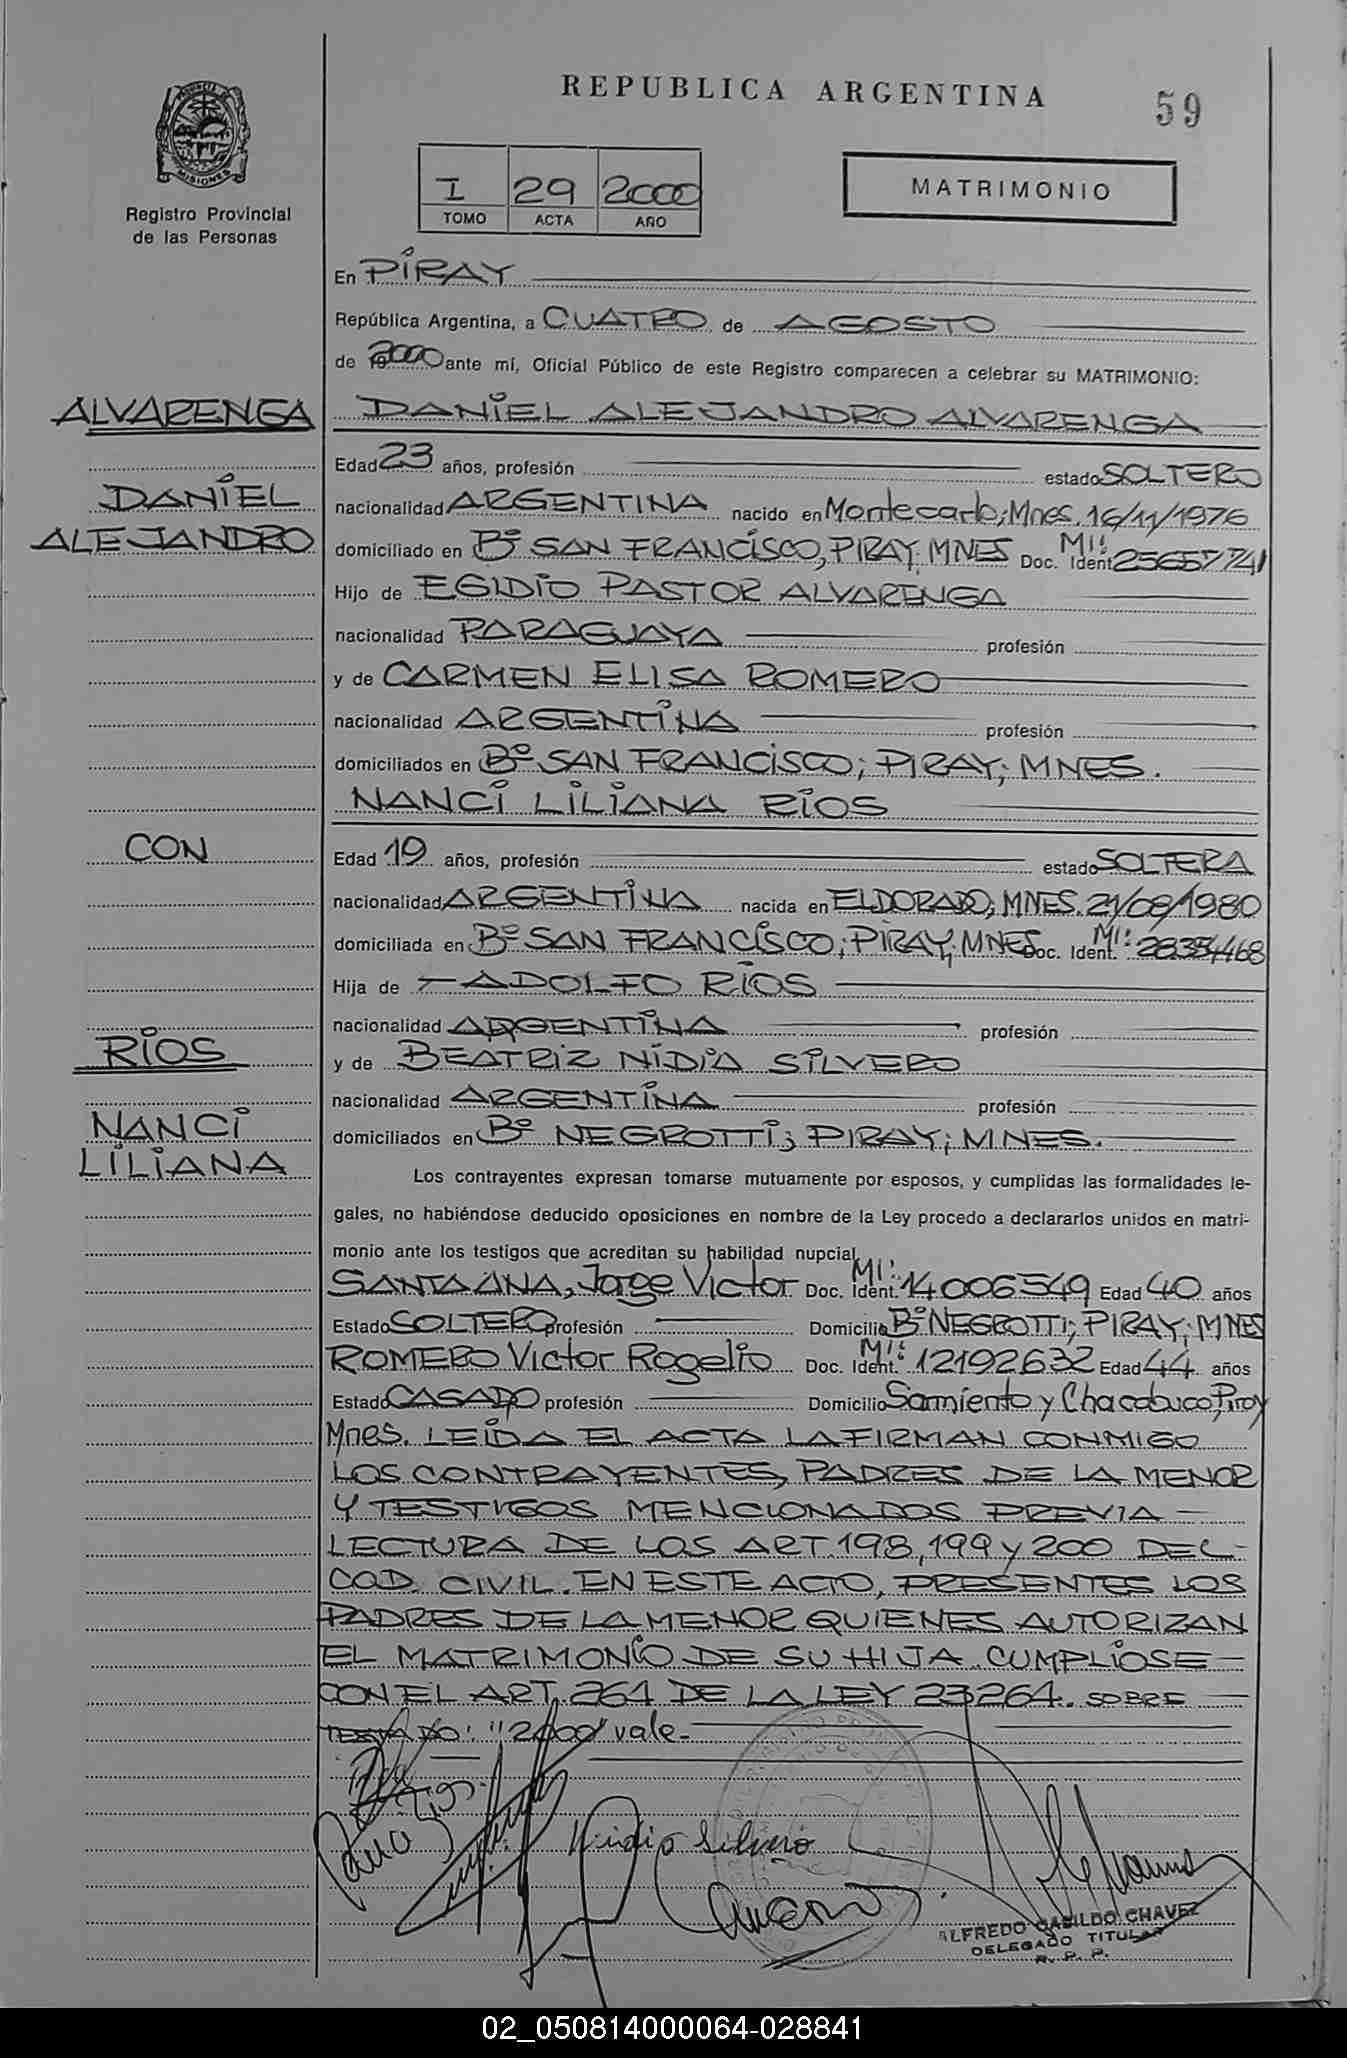 REPUBLICA ARGENTINA
59
PROVINCIA DE
MISIONES
Registro Provincial
de las Personas
I 29 2000
TOMO ACTA AÑO
MATRIMONIO
En PIRAY
República Argentina, a CUATRO de AGOSTO
de 2000 ante mí, Oficial Público de este Registro comparecen a celebrar su MATRIMONIO:
ALVARENGA
DANIEL
ALEJANDRO
DANIEL ALEJANDRO ALVARENGA
Edad 23 años, profesión estado SOLTERO
nacionalidad ARGENTINA nacido en Montecarlo; Mnes. 16/11/1976
domiciliado en Bº SAN FRANCISCO, PIRAY; MNES Doc. Ident. MI: 25657741
Hijo de EGIDIO PASTOR ALVARENGA
nacionalidad PARAGUAYA profesión
y de CARMEN ELISA ROMERO
nacionalidad ARGENTINA profesión
domiciliados en Bº SAN FRANCISCO; PIRAY; MNES.
NANCI LILIANA RIOS
CON
Edad 19 años, profesión estado SOLTERA
nacionalidad ARGENTINA nacida en ELDORADO; MNES. 21/08/1980
domiciliada en Bº SAN FRANCISCO; PIRAY; MNES Doc. Ident. MI: 28354468
Hija de ADOLFO RIOS
nacionalidad ARGENTINA profesión
RIOS
y de BEATRIZ NIDIA SILVERO
nacionalidad ARGENTINA profesión
NANCI
LILIANA
domiciliados en Bº NEGROTTI; PIRAY; MNES.
Los contrayentes expresan tomarse mutuamente por esposos, y cumplidas las formalidades le-
gales, no habiéndose deducido oposiciones en nombre de la Ley procedo a declararlos unidos en matri-
monio ante los testigos que acreditan su habilidad nupcial
SANTAANA, Jorge Victor Doc. Ident. MI: 14006549 Edad 40 años
Estado SOLTERO profesión Domicilio Bº NEGROTTI; PIRAY; MNES
ROMERO Victor Rogelio Doc. Ident. MI: 12192632 Edad 44 años
Estado CASADO profesión Domicilio Sarmiento y Chacabuco, Piray
Mnes. LEIDA EL ACTA LA FIRMAN CONMIGO
LOS CONTRAYENTES, PADRES DE LA MENOR
Y TESTIGOS MENCIONADOS PREVIA
LECTURA DE LOS ART. 198, 199 y 200 DEL
COD. CIVIL. EN ESTE ACTO, PRESENTES LOS
PADRES DE LA MENOR QUIENES AUTORIZAN
EL MATRIMONIO DE SU HIJA. CUMPLIOSE
CON EL ART. 264 DE LA LEY 23264. SOBRE
TESTADO: "2000" vale
Nidia Silvero
ALFREDO CASILDO CHAVEZ
DELEGADO TITULAR
R. P. P.
02_050814000064-028841